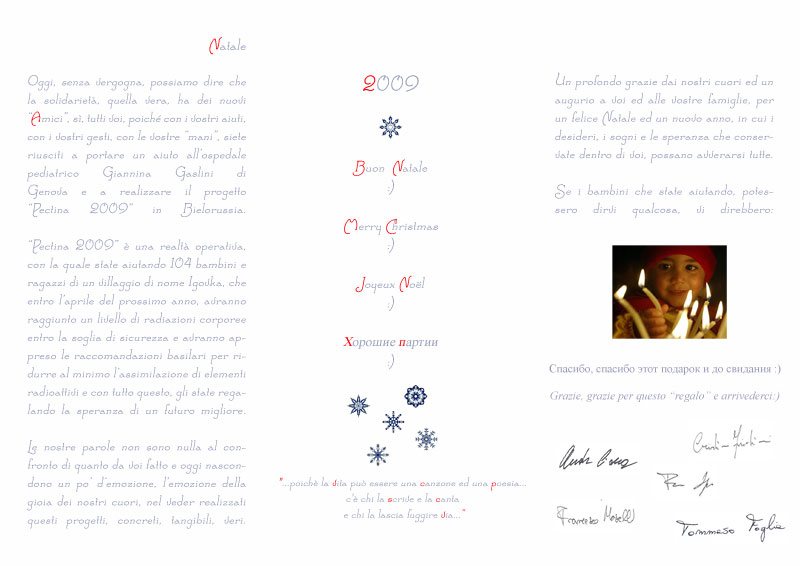 Natale
Oggi, senza vergogna, possiamo dire che
la solidarietà, quella vera, ha dei nuovi
"Amici", sì, tutti voi, poiché con i vostri aiuti,
con i vostri gesti, con le vostre "mani", siete
riusciti a portare un aiuto all'ospedale
pediatrico Giannina Gaslini di
Genova e a realizzare il progetto
"Pectina 2009" in Bielorussia.
"Pectina 2009" è una realtà operativa,
con la quale state aiutando 104 bambini e
ragazzi di un villaggio di nome Igovka, che
entro l'aprile del prossimo anno, avranno
raggiunto un livello di radiazioni corporee
entro la soglia di sicurezza e avranno ap-
preso le raccomandazioni basilari per ri-
durre al minimo l'assimilazione di elementi
radioattivi e con tutto questo, gli state rega-
lando la speranza di un futuro migliore.
Le nostre parole non sono nulla al con-
fronto di quanto da voi fatto e oggi nascon-
dono un po' d'emozione, l'emozione della
gioia dei nostri cuori, nel veder realizzati
questi progetti, concreti, tangibili, veri.
2009
Buon Natale
:)
Merry Christmas
:)
Joyeux Noël
:)
Хорошие партии
:)
"...poichè la vita può essere una canzone ed una poesia...
c'è chi la scrive e la canta
e chi la lascia fuggire via..."
Un profondo grazie dai nostri cuori ed un
augurio a voi ed alle vostre famiglie, per
un felice Natale ed un nuovo anno, in cui i
desideri, i sogni e le speranza che conser-
vate dentro di voi, possano avverarsi tutte.
Se i bambini che state aiutando, potes-
sero dirvi qualcosa, vi direbbero:
Спасибо, спасибо этот подарок и до свидания :)
Grazie, grazie per questo "regalo" e arrivederci:)
Tommaso Foglia